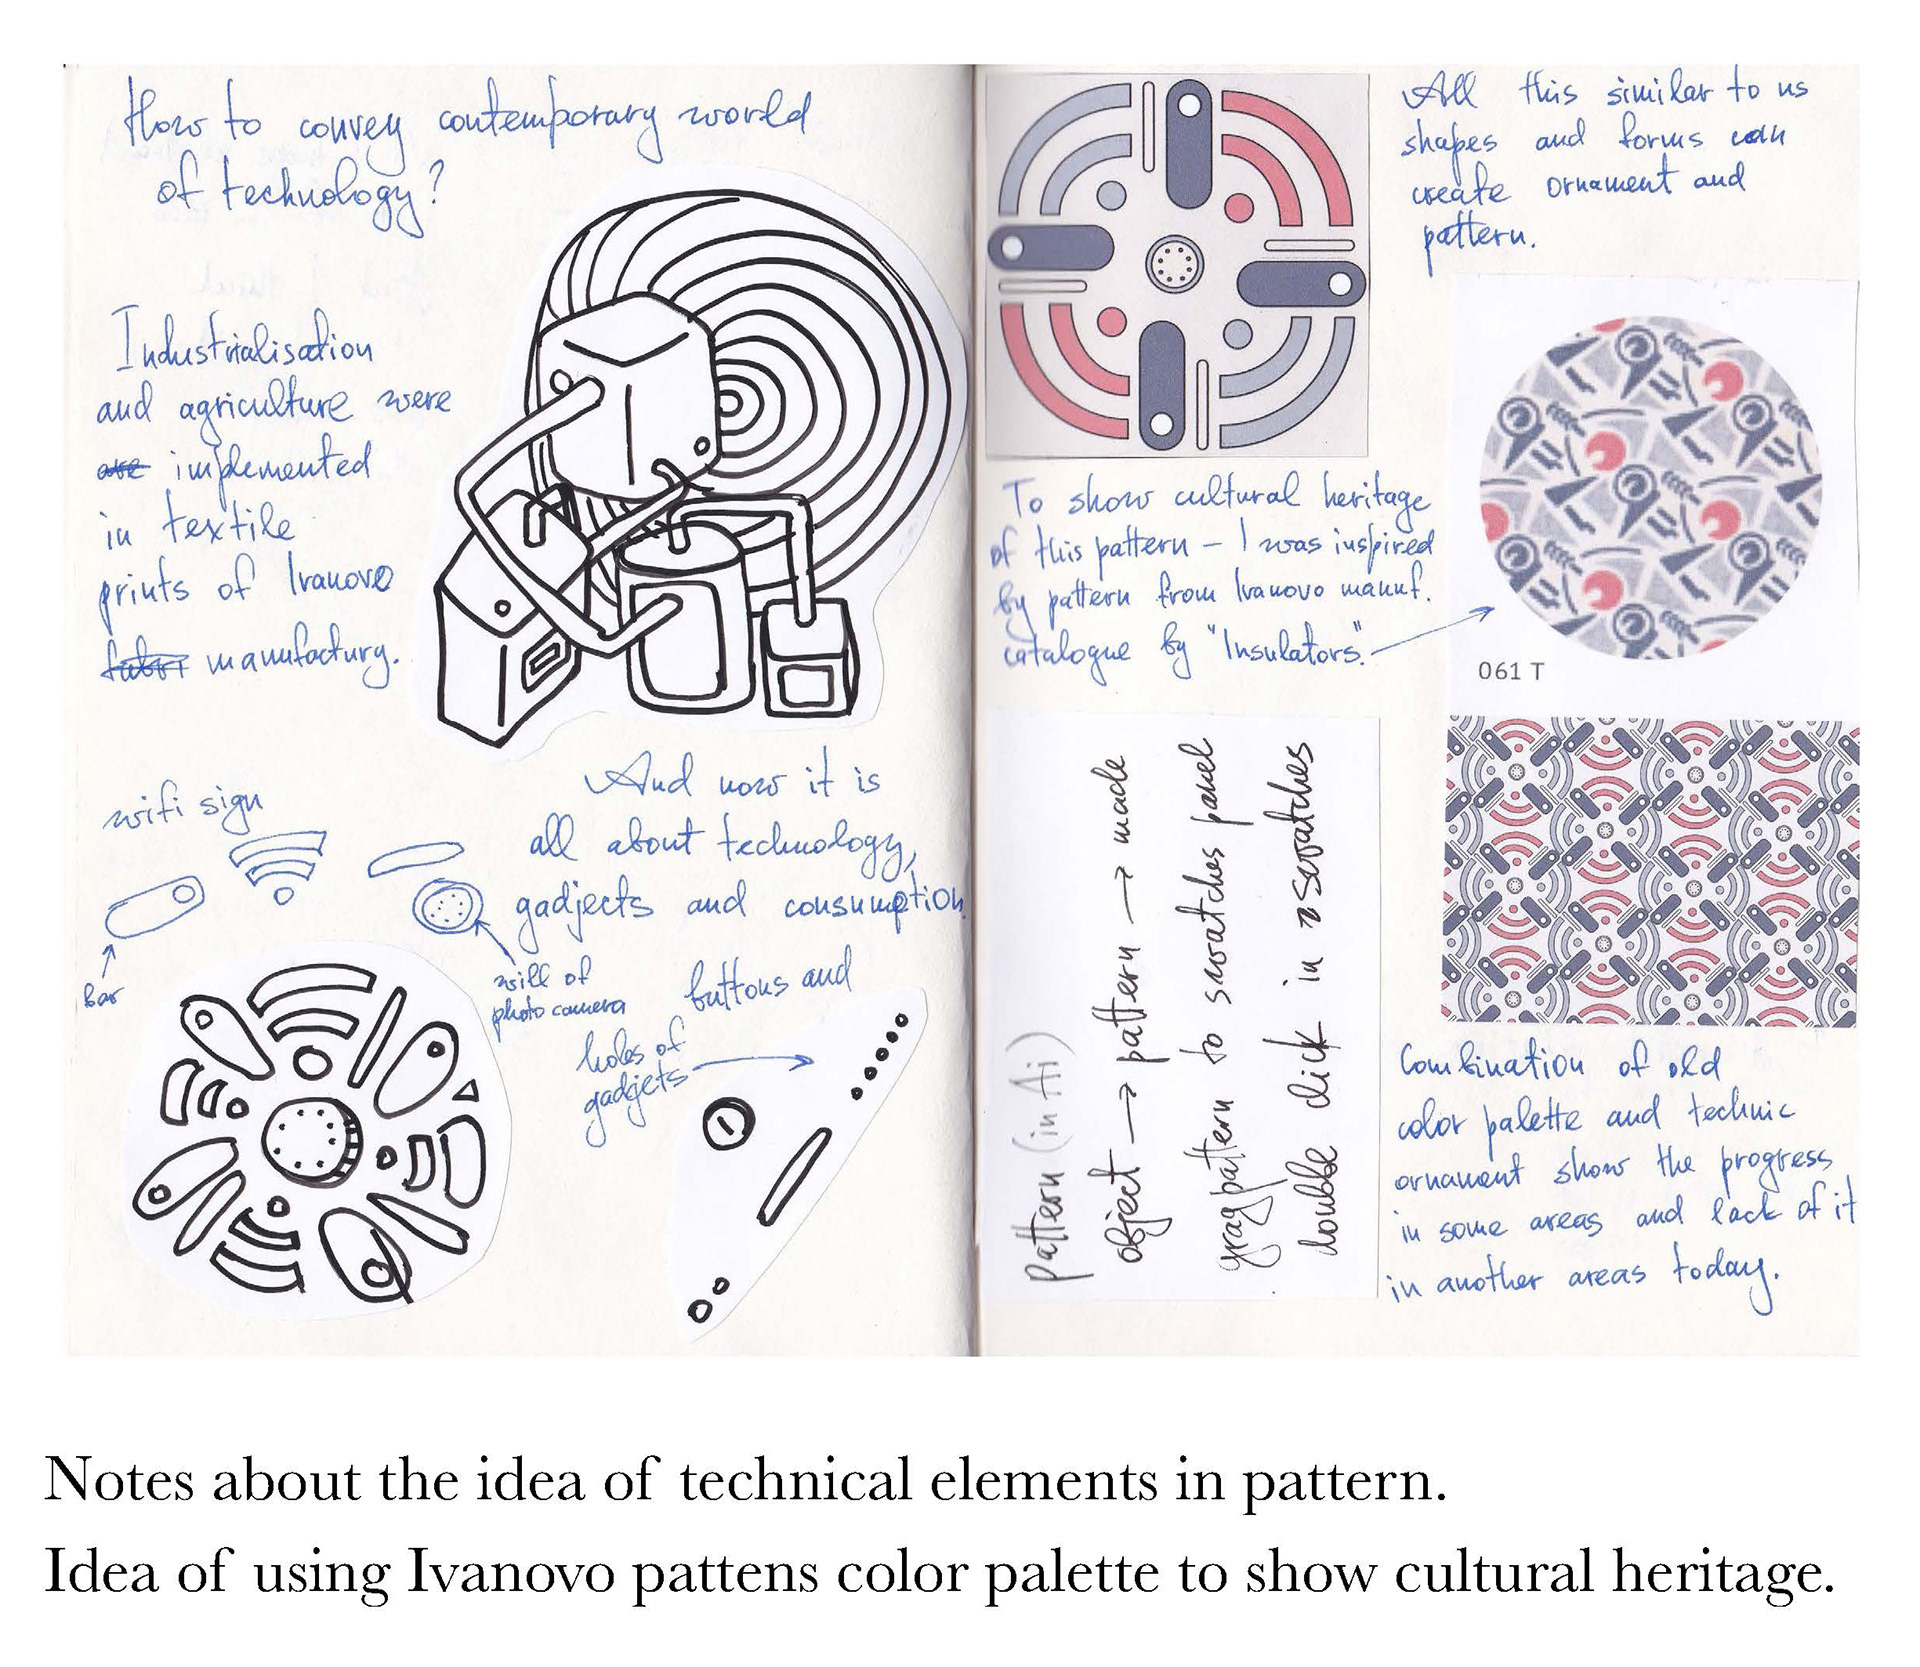 How to convey contemporary world
of technology?
Industrialisation
and agriculture were
are implemented
in textile
prints of Ivanovo
manufactury.
wifi sign
bar
And now it is
all about technology,
gadjects and consumption.
will of
photo camera
buttons and
holes of
gadgets
All this similar to us
shapes and forms can
create ornament and
pattern.
To show cultural heritage
of this pattern – I was inspired
by pattern from Ivanovo manuf.
catalogue by "Insulators."
061 T
pattern (in Ai)
object → pattern → made
grag pattern to swratches panel
double click in swratches
Combination of old
color palette and technic
ornament show the progress
in some areas and lack of it
in another areas today.
Notes about the idea of technical elements in pattern.
Idea of using Ivanovo pattens color palette to show cultural heritage.